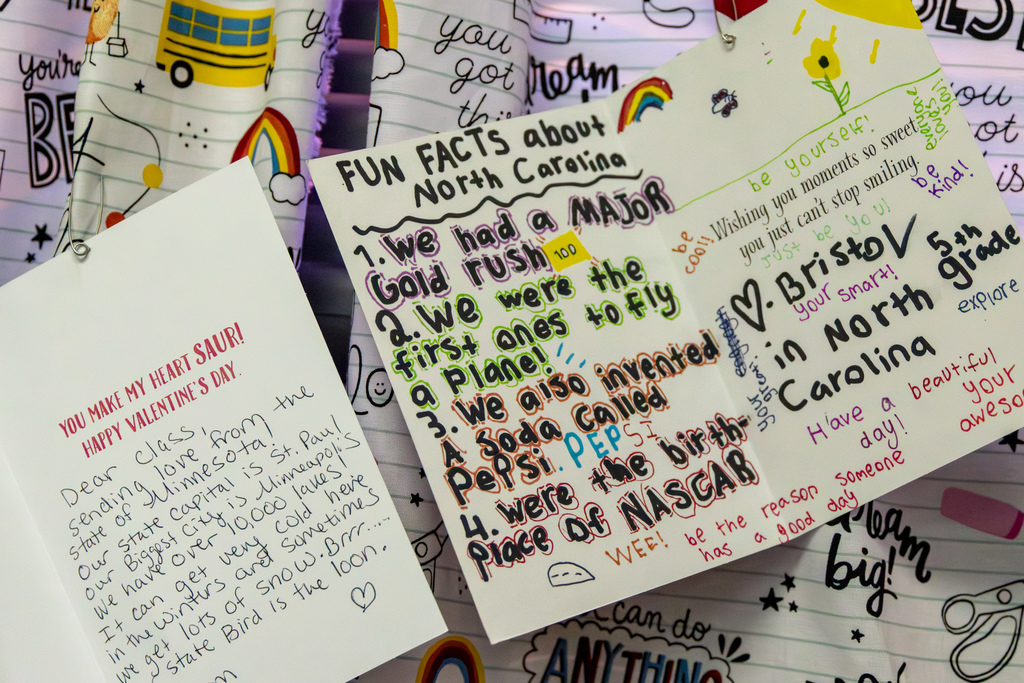 YOU MAKE MY HEART SAUR!
HAPPY VALENTINE'S DAY.
Dear Class,
sending love from the
state of Minnesota!
our state capital is St. Paul
our Biggest City is Minneapolis
We have over 10,000 lakes!
It can get very cold here
in the winters and sometimes
we get lots of snow. Brrr....
state Bird is the loon.
FUN FACTS about
North Carolina
1. We had a MAJOR
Gold rush
100
2. We were the
first ones to fly
a Plane!
3. We also invented
A Soda Called
PePSi. PEPSI
4. were the birth-
Place of NASCAR
WEE!
be yourself!
everyone loves you!
Wishing you moments so sweet
you just can't stop smiling.
be kind!
just be you!
be cool!
Bristol
5th grade
your smart!
in North
Carolina
explore
your great!
Have a beautiful
day!
your
awesome
be the reason someone
has a good day
you're
BE
you
got
this
dream
you
got
dream
big!
can do
ANYTHING